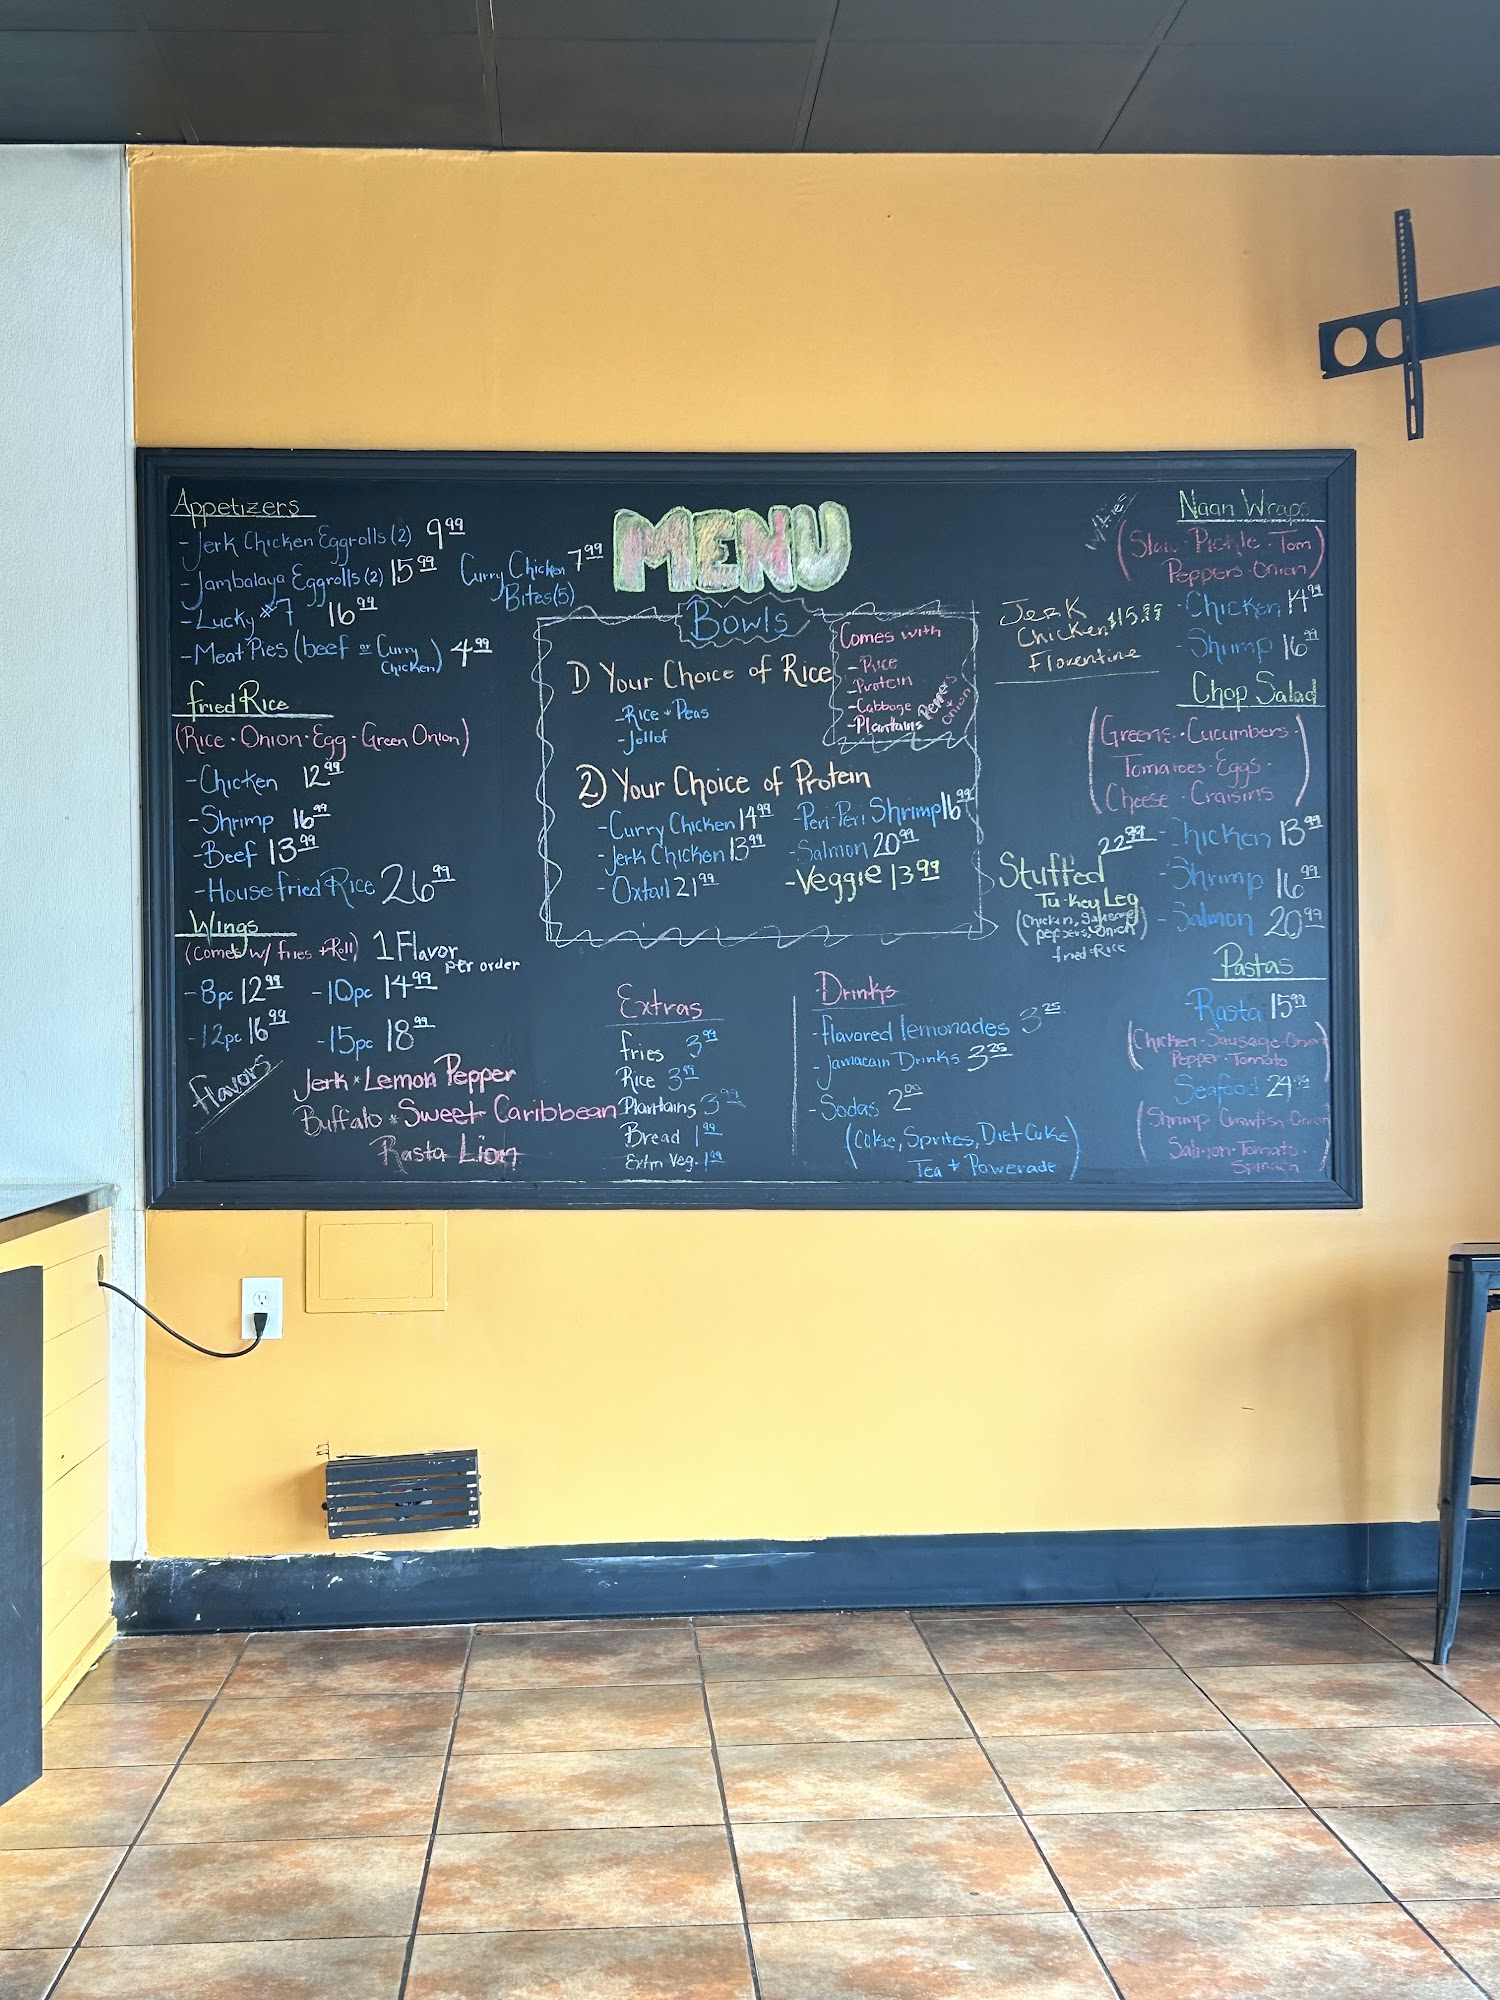 MENU
Appetizers
-Jerk Chicken Eggrolls (2) 9.99
-Jambalaya Eggrolls (2) 15.99
-Lucky #7 16.99
-Meat Pies (beef or Curry Chicken) 4.99
Curry Chicken 7.99
Bites (5)
Fried Rice
(Rice · Onion · Egg · Green Onion)
-Chicken 12.99
-Shrimp 16.99
-Beef 13.99
-House Fried Rice 26.99
Wings
(Comes w/ fries + Roll) 1 Flavor per order
-8pc 12.99 -10pc 14.99
-12pc 16.99 -15pc 18.99
Flavors
Jerk * Lemon Pepper
Buffalo * Sweet Caribbean
Rasta Lion
Bowls
1) Your Choice of Rice
-Rice + Peas
-Jollof
Comes with
-Rice
-Protein
-Cabbage
-Plantains
Peppers + onion
2) Your Choice of Protein
-Curry Chicken 14.99 -Peri-Peri Shrimp 16.99
-Jerk Chicken 13.99 -Salmon 20.99
-Oxtail 21.99 -Veggie 13.99
Extras
Fries 3.99
Rice 3.99
Plantains 3.99
Bread 1.99
Extra Veg. 1.99
Drinks
-flavored lemonades 3.25
-Jamacain Drinks 3.25
-Sodas 2.00
(Coke, Sprites, Diet Coke
Tea + Powerade)
Jerk
Chicken $15.99
Florentine
22.99
Stuffed
Turkey Leg
(Chicken, Sausage
peppers, onion)
fried Rice
w/fries
Naan Wraps
(Slaw · Pickle · Tom
Peppers · Onion)
-Chicken 14.99
-Shrimp 16.99
Chop Salad
(Greens · Cucumbers ·
Tomatoes · Eggs ·
Cheese · Craisins)
-Chicken 13.99
-Shrimp 16.99
-Salmon 20.99
Pastas
Rasta 15.99
(Chicken · Sausage · Onion
Pepper · Tomato)
Seafood 24.99
(Shrimp Crawfish Onion
Salmon · Tomato ·
Spinach)